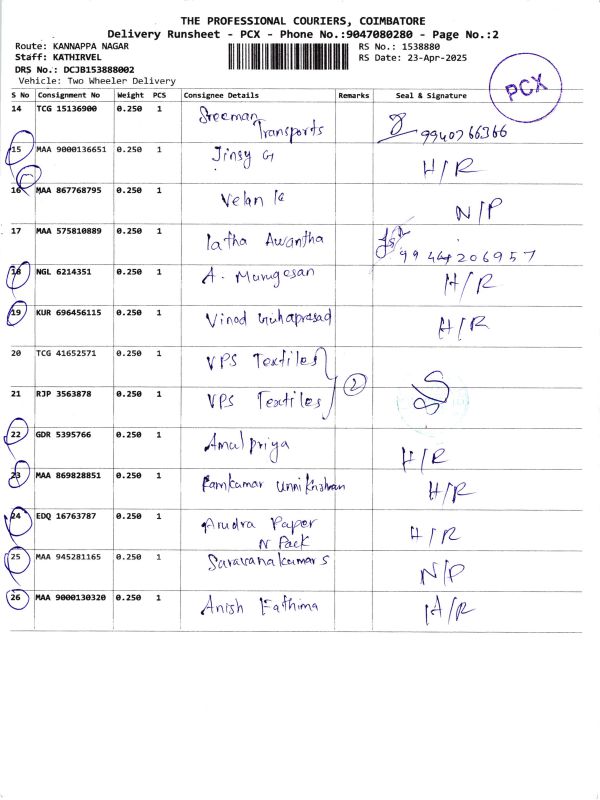 THE PROFESSIONAL COURIERS, COIMBATORE
Delivery Runsheet - PCX - Phone No.:9047080280 - Page No.:2
Route: KANNAPPA NAGAR
Staff: KATHIRVEL
DRS No.: DCJB153888002
Vehicle: Two Wheeler Delivery
RS No.: 1538880
RS Date: 23-Apr-2025
PCX
S No Consignment No Weight PCS Consignee Details Remarks Seal & Signature
14 TCG 15136900 0.250 1 Sreeman Transports 9940766366
15 MAA 9000136651 0.250 1 Jinsy G H/R
16 MAA 867768795 0.250 1 Velan K N/P
17 MAA 575810889 0.250 1 latha Awantha 9944206957
18 NGL 6214351 0.250 1 A. Murugesan H/R
19 KUR 696456115 0.250 1 Vinod Guhaprasad H/R
20 TCG 41652571 0.250 1 VPS Textiles
2
21 RJP 3563878 0.250 1 VPS Textiles
22 GDR 5395766 0.250 1 Amulpriya H/R
23 MAA 869828851 0.250 1 Ramkumar Unnikrishnan H/R
24 EDQ 16763787 0.250 1 Paper N Pack H/R
25 MAA 945281165 0.250 1 Saravanakumar S N/P
26 MAA 9000130320 0.250 1 Anish Fathima H/R